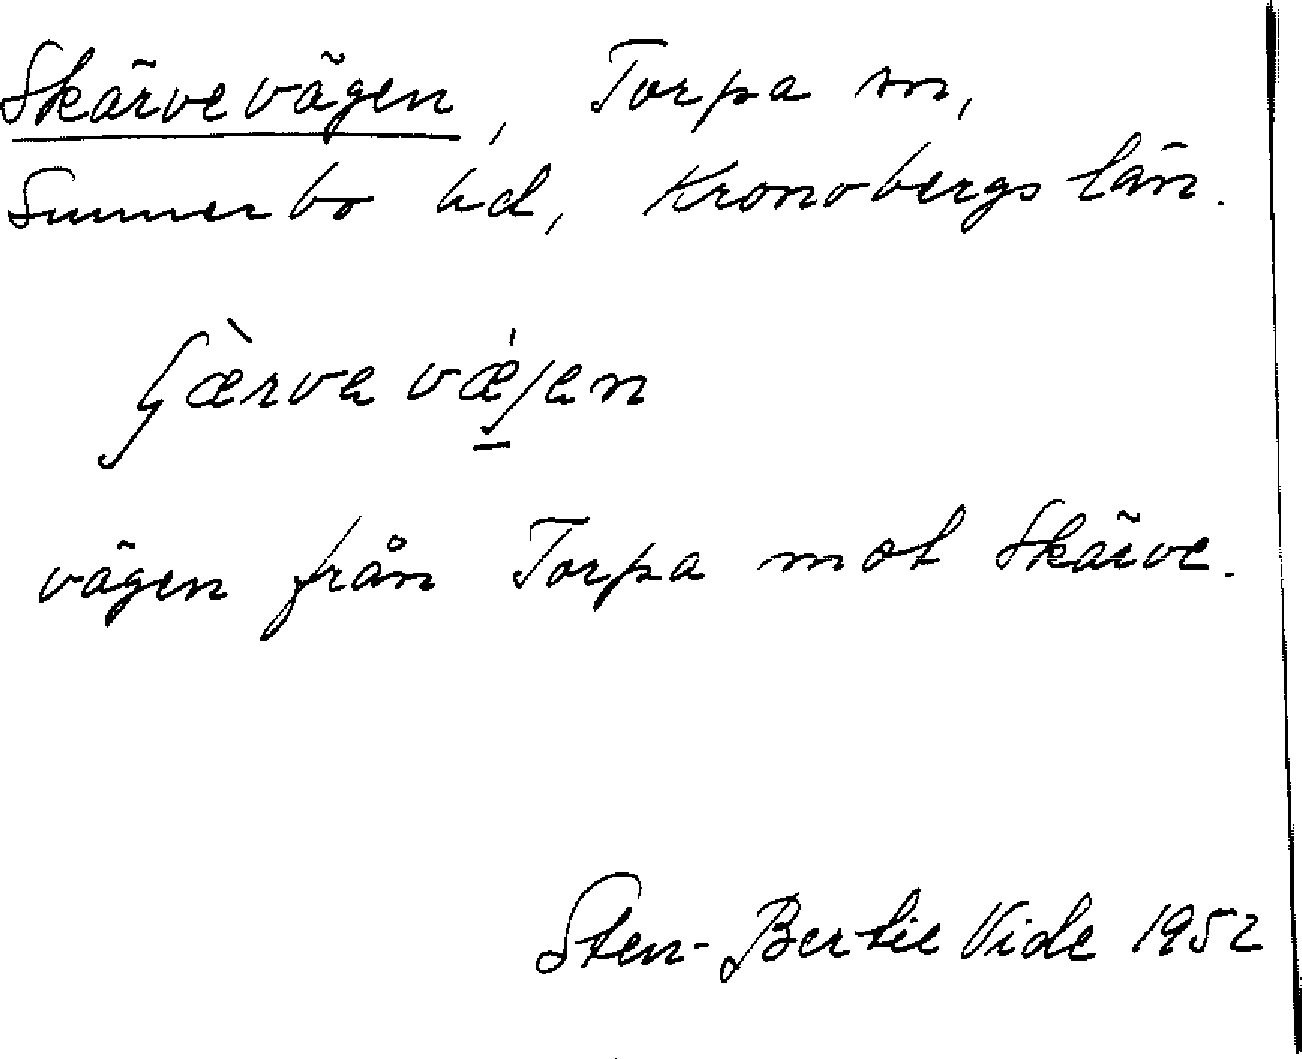 Skärvevägen, Torpa sn,
Sunnerbo hd, Kronobergs län.
ʃæ̀rva vǽjan
vägen från Torpa mot Skärve.
Sten-Bertil Vide 1952